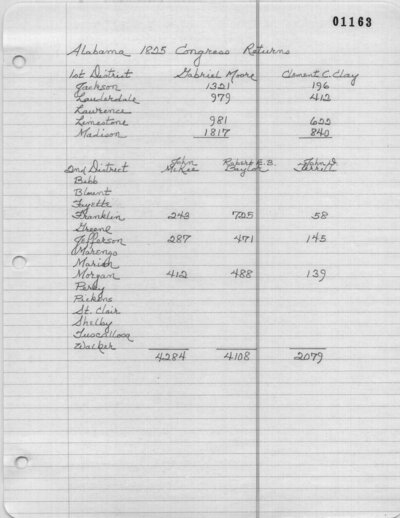 01163
Alabama 1825 Congress Returns
1st District Gabriel Moore Clement C. Clay
Jackson 1321 196
Lauderdale 979 412
Lawrence
Limestone 981 622
Madison 1817 840
2nd District John McKee Robert E. B. Baylor John D. Terrill
Bibb
Blount
Fayette
Franklin 243 725 58
Greene
Jefferson 287 471 145
Marengo
Marion
Morgan 412 488 139
Perry
Pickens
St. Clair
Shelby
Tuscaloosa
Walker
4284 4108 2079